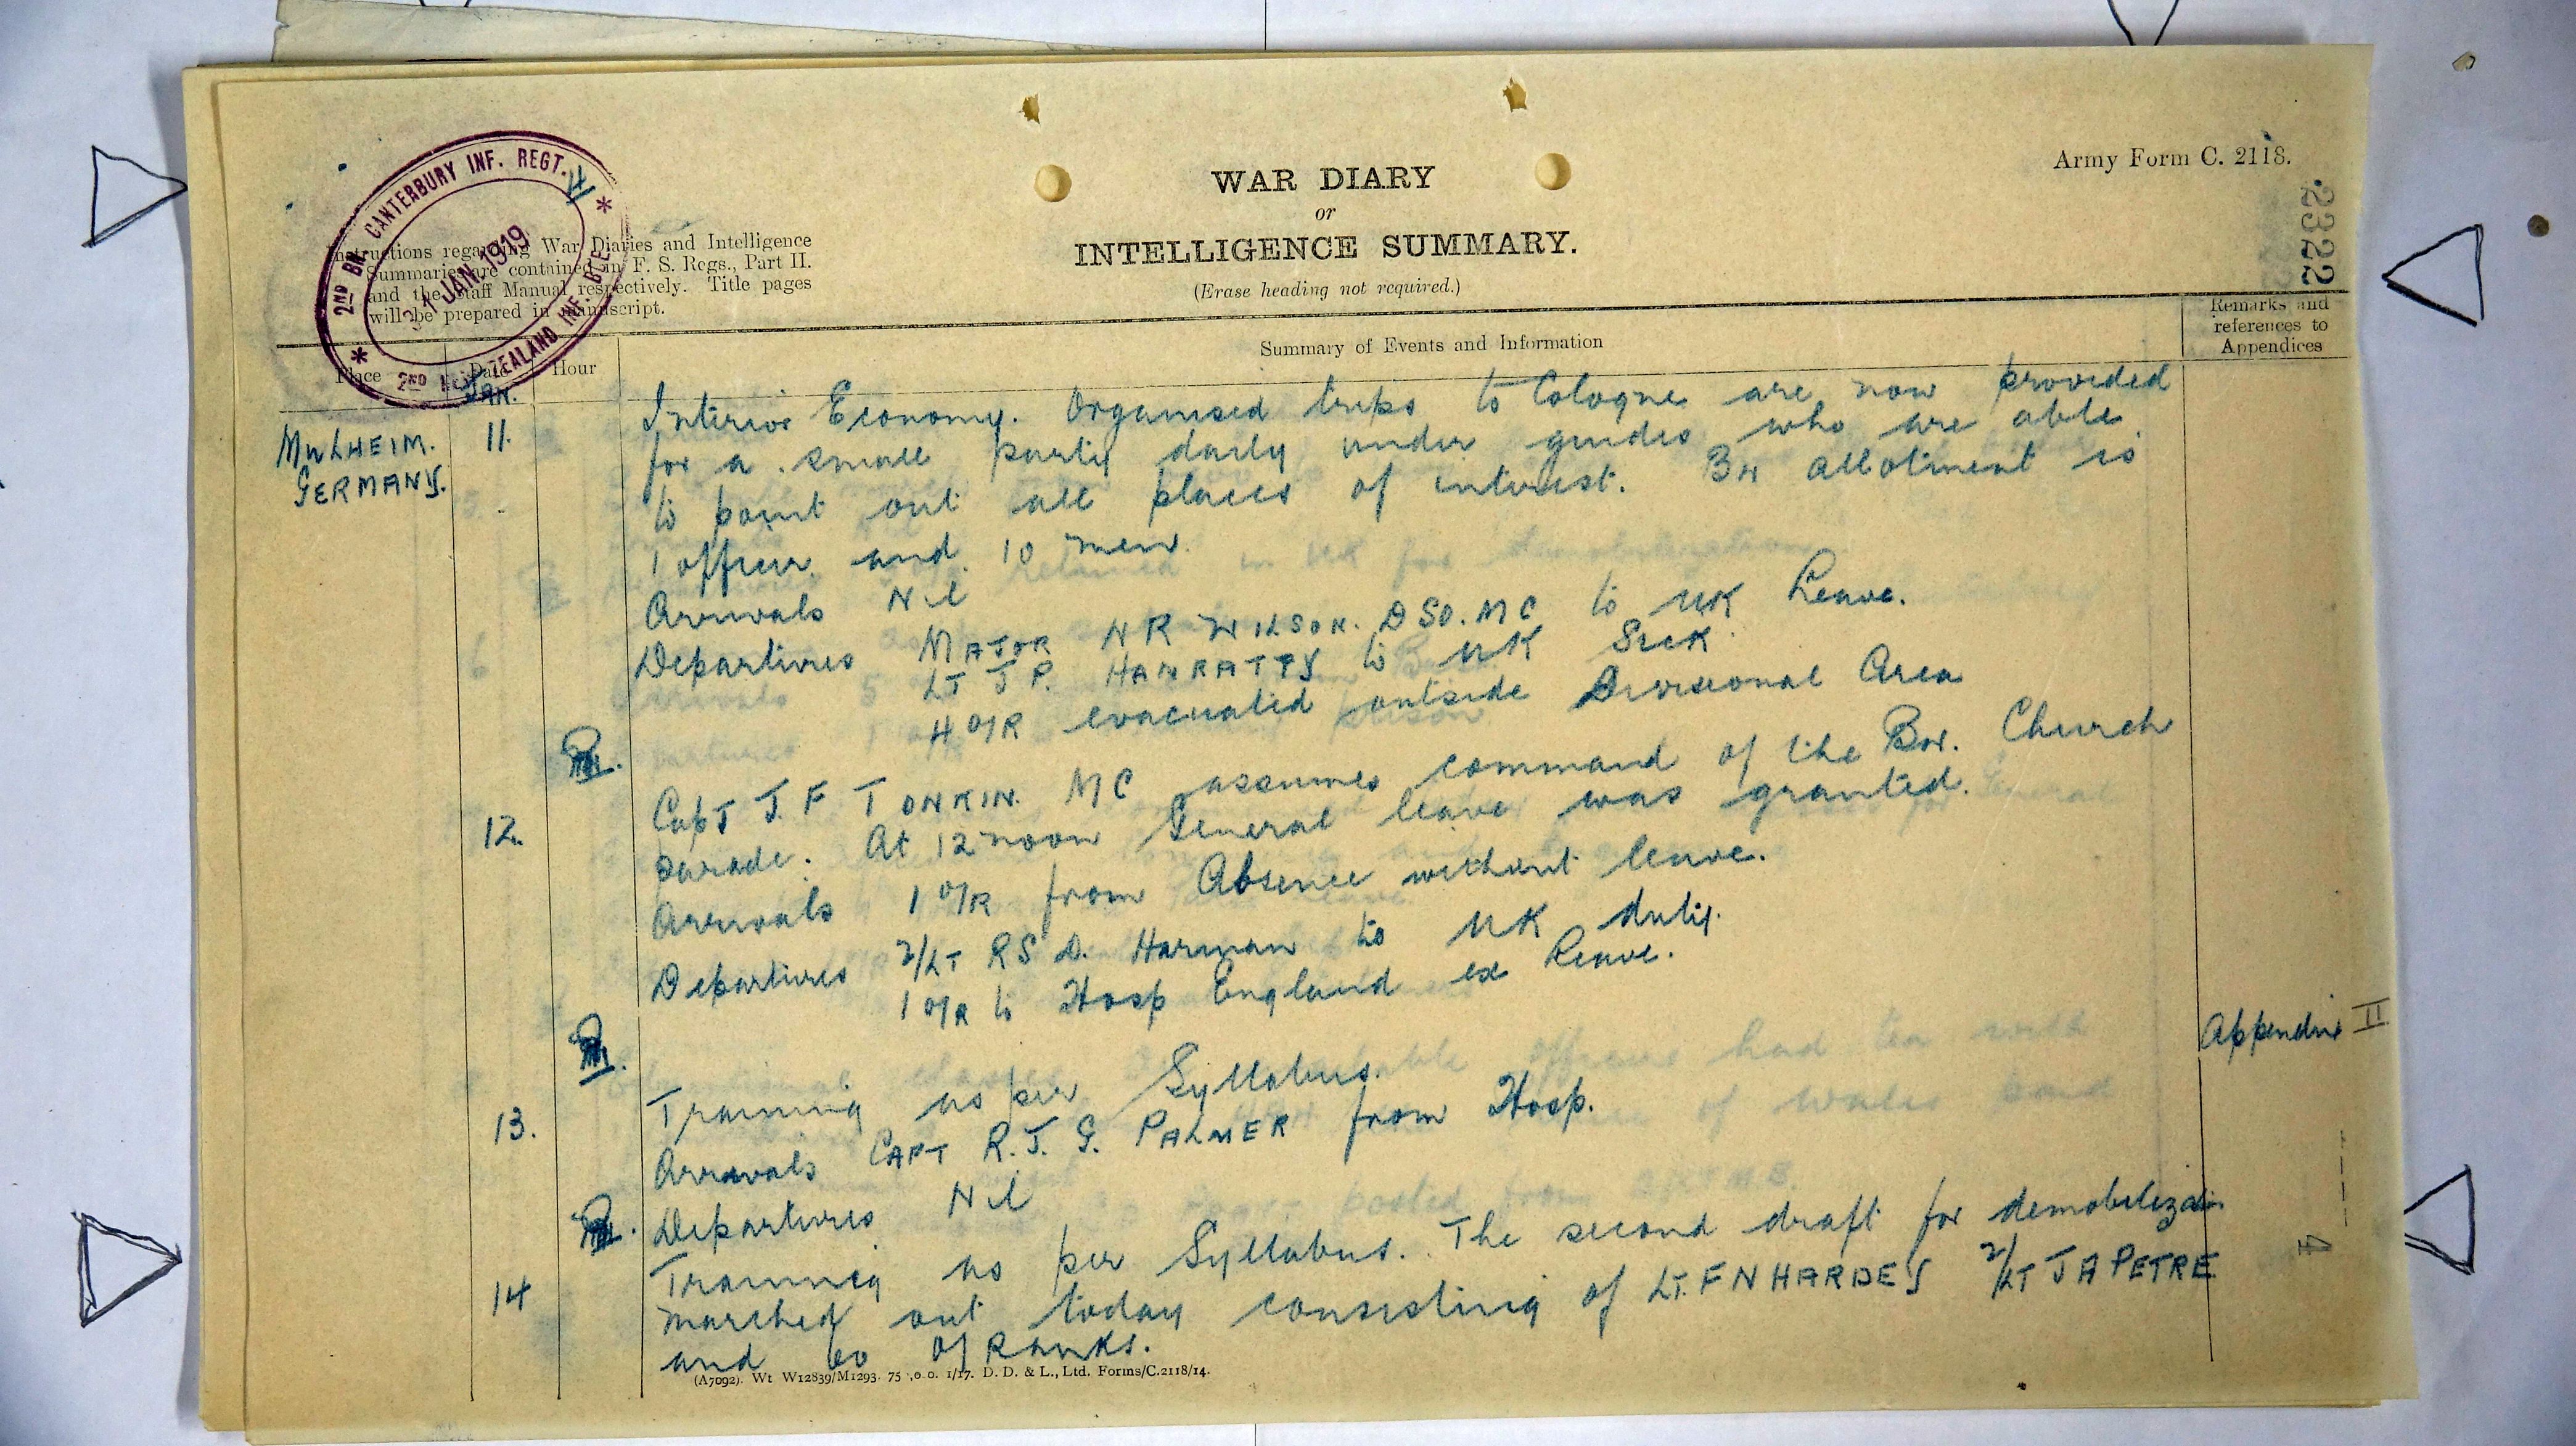 Army Form C. 2118.
WAR DIARY
or
INTELLIGENCE SUMMARY.
(Erase heading not required.)
23222
2ND BN. CANTERBURY INF. REGT.
31 JAN 1919
2ND NEW ZEALAND INF. BDE.
Instructions regarding War Diaries and Intelligence
Summaries are contained in F. S. Regs., Part II.
and the Staff Manual respectively. Title pages
will be prepared in manuscript.
Place
Date
Hour
Summary of Events and Information
Remarks and
references to
Appendices
JAN.
MULHEIM.
GERMANY.
11.
Interior Economy. Organised trips to Cologne are now provided
for a small party daily under guides who are able
to point out all places of interest. Bn allotment is
1 officer and 10 men.
Arrivals Nil
Departures MAJOR N R WILSON. DSO. MC to UK Leave.
LT J P. HANRATTY to UK Sick
4 O/R evacuated outside Divisional Area
12.
Capt J. F TONKIN. MC assumes command of the Bn. Church
parade. At 12 noon General leave was granted.
Arrivals 1 O/R from Absence without leave.
Departures 2/LT R S D. Harman to UK duty.
1 O/R to Hosp England ex Leave.
Appendix II
13.
Training as per Syllabus.
Arrivals CAPT R. J. G. PALMER from Hosp.
Departures Nil
14
Training as per Syllabus. The second draft for demobilization
marched out today consisting of LT. F N HARDEY 2/LT J A PETRE
and 60 O/Ranks.
4
(A7092). Wt W12839/M1293. 75 ,0.0. 1/17. D. D. & L., Ltd. Forms/C.2118/14.